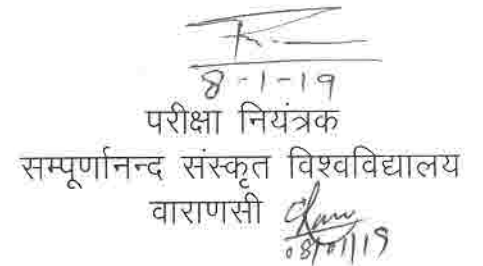 8-1-19
परीक्षा नियंत्रक
सम्पूर्णानन्द संस्कृत विश्वविद्यालय
वाराणसी
08/01/19